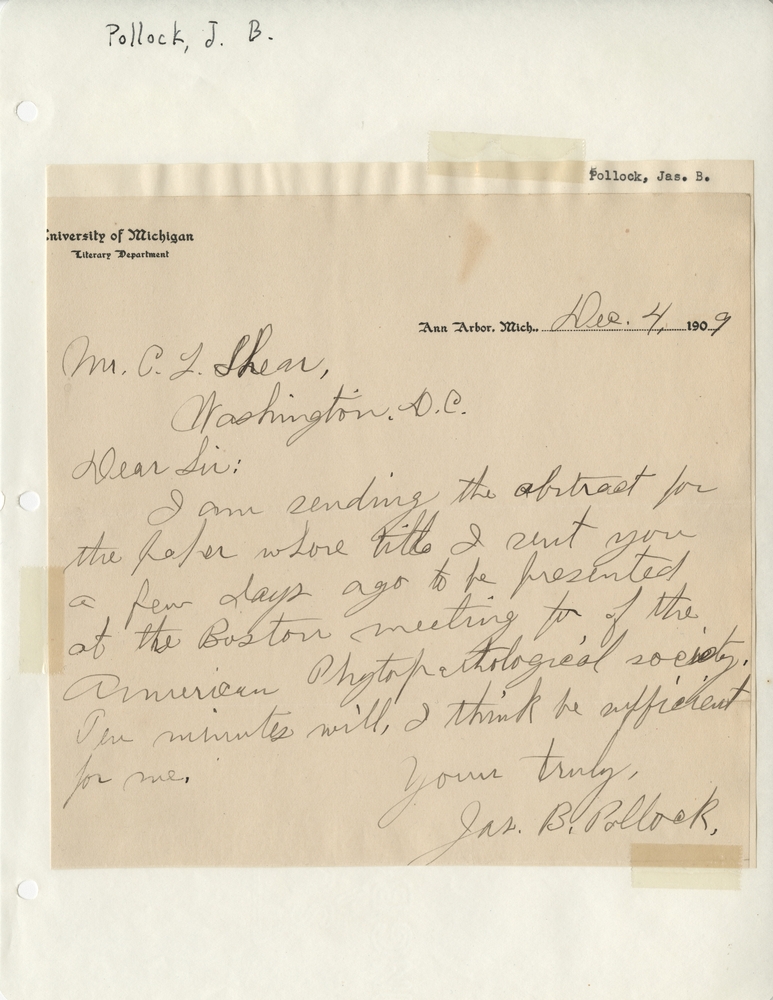 Pollock, J. B.
Pollock, Jas. B.
University of Michigan
Literary Department
Ann Arbor, Mich., Dec. 4, 1909
Mr. C. L. Shear,
Washington, D.C.
Dear Sir:
I am sending the abstract for
the paper whose title I sent you
a few days ago to be presented
at the Boston meeting of the
American Phytopathological society.
Ten minutes will, I think be sufficient
for me.
Yours truly,
Jas. B. Pollock.